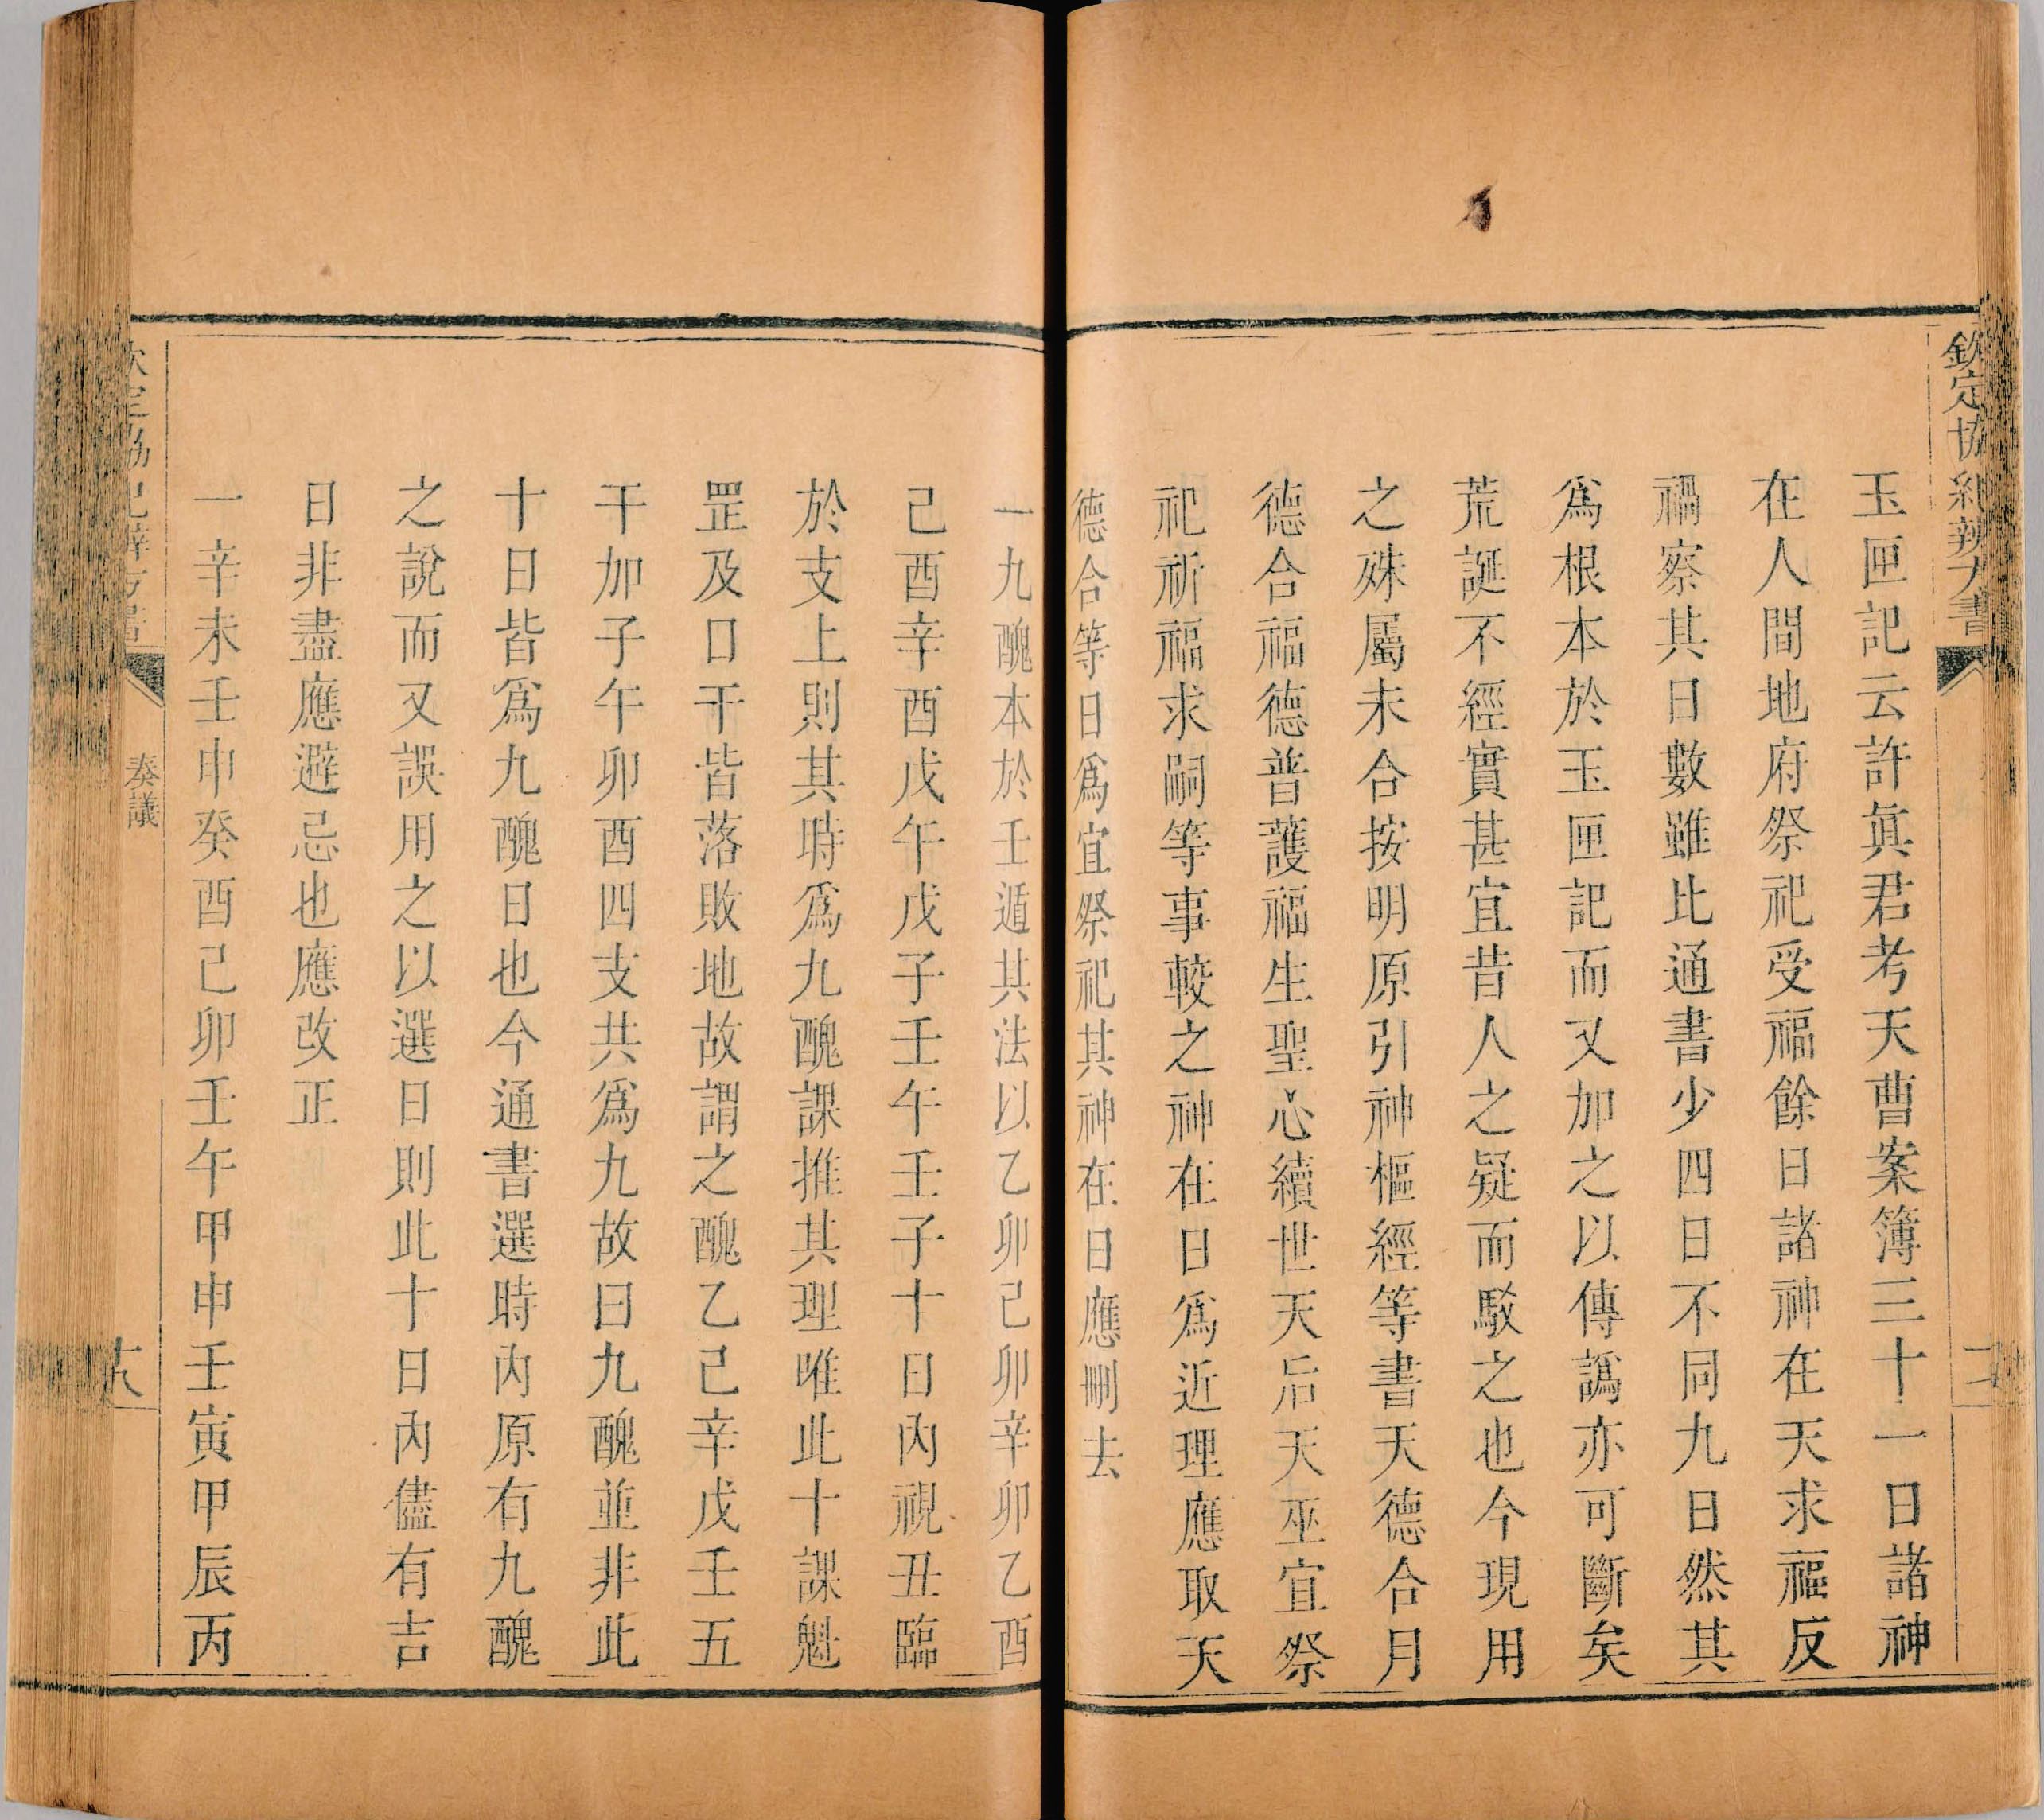 欽定協紀辨方書
玉匣記云許眞君考天曹案簿三十一日諸神
在人間地府祭祀受福餘日諸神在天求福反
禍察其日數雖比通書少四日不同九日然其
爲根本於玉匣記而又加之以傳譌亦可斷矣
荒誕不經實甚宜昔人之疑而駁之也今現用
之殊屬未合按明原引神樞經等書天德合月
德合福德普護福生聖心續世天后天巫宜祭
祀祈福求嗣等事較之神在日爲近理應取天
德合等日爲宜祭祀其神在日應刪去
一九醜本於壬遁其法以乙卯己卯辛卯乙酉
己酉辛酉戊午戊子壬午壬子十日內視丑臨
於支上則其時爲九醜課推其理唯此十課魁
罡及日干皆落敗地故謂之醜乙己辛戊壬五
干加子午卯酉四支共爲九故曰九醜並非此
十日皆爲九醜日也今通書選時內原有九醜
之說而又誤用之以選日則此十日內儘有吉
日非盡應避忌也應改正
一辛未壬申癸酉己卯壬午甲申壬寅甲辰丙
欽定協紀辨方書
奏議